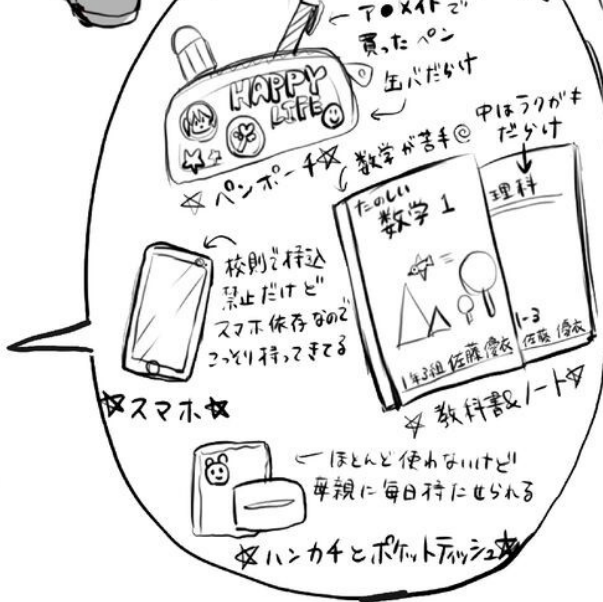 ア●メイトで
買ったペン
缶バだらけ
HAPPY
LIFE
☆ペンポーチ☆
数学が苦手@
中はラクガキ
だらけ
たのしい
数学1
1年3組 佐藤優衣
理科
1-3
佐藤優衣
☆教科書&ノート☆
校則で持込
禁止だけど
スマホ依存なので
こっそり持ってきてる
☆スマホ☆
ほとんど使わないけど
母親に毎日持たせられる
☆ハンカチとポケットティッシュ☆